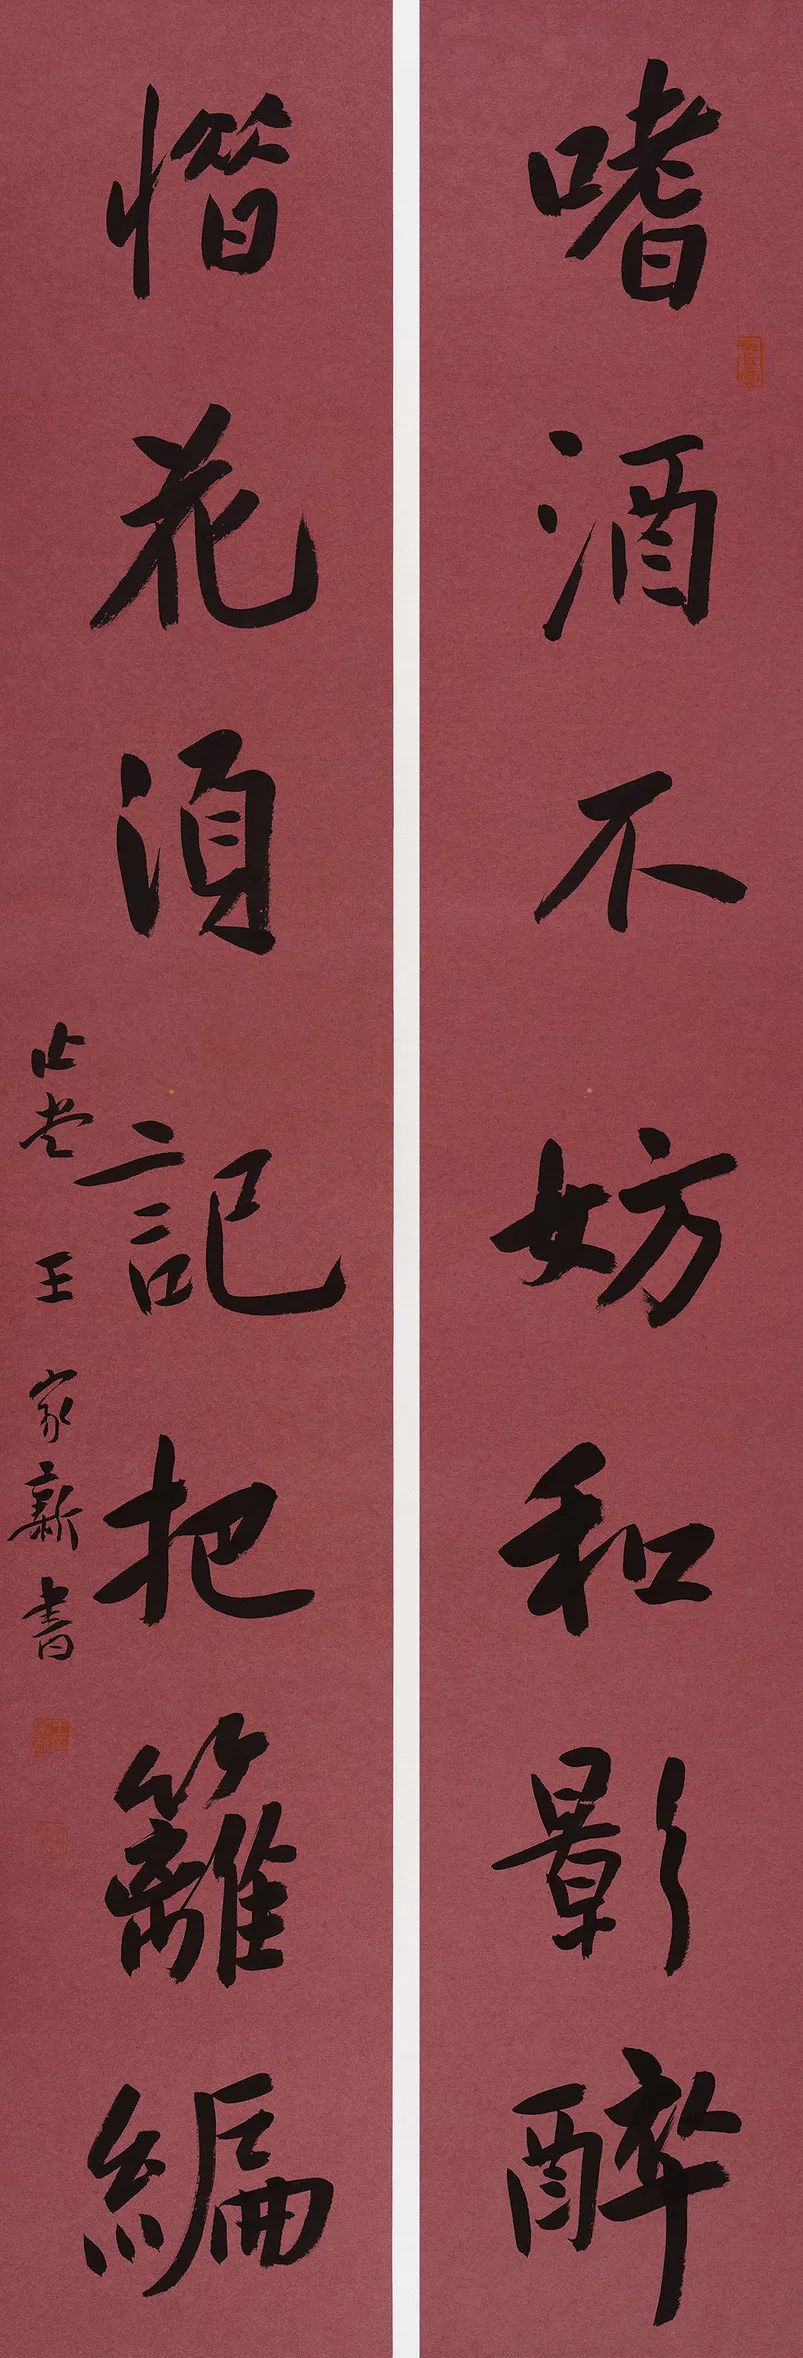 嗜酒不妨和影醉
惜花須記把籬編
止堂王家新書